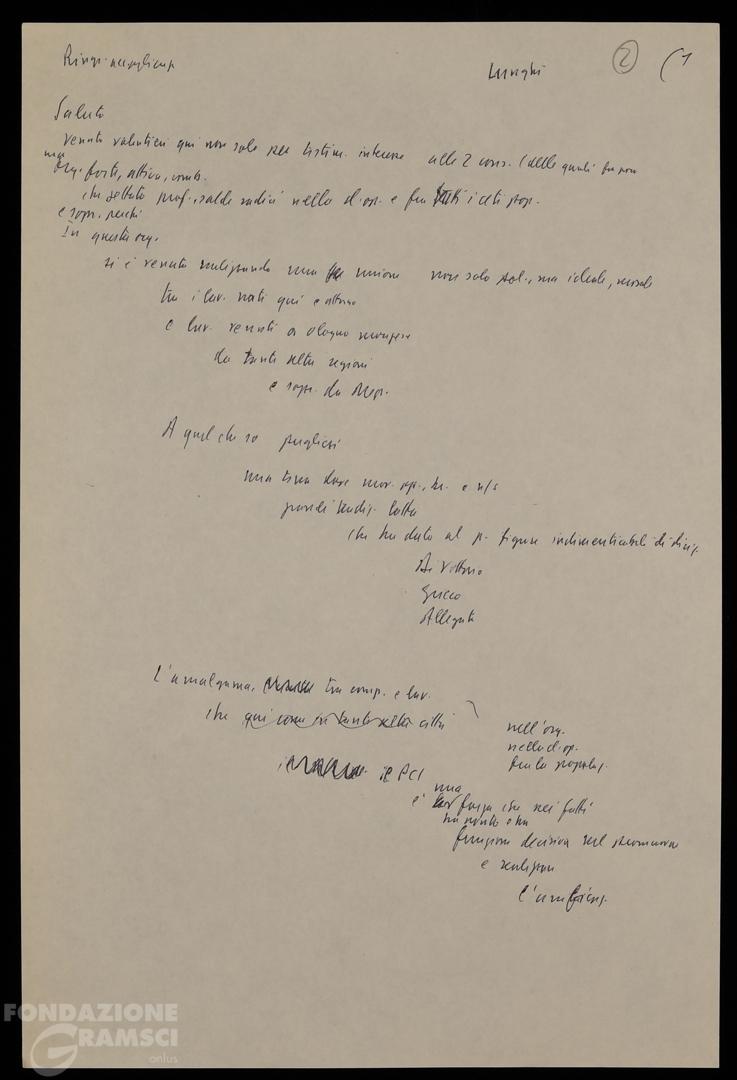 Ring. accoglienza
Lunghi
2 (1
Saluto
Venuto volentieri qui non solo per testim. interesse alle 2 conf. (delle quali
una
org. forte, attiva, comb.
che gettato prof., salde radici nella cl. op. e fra tutti i ceti pop.
e sopr. perché
In questa org.
si è venuta realizzando una unione non solo pol., ma ideale, morale
tra i lav. nati qui e attorno
e lav. venuti a
da tante altre regioni
e sopr. da Mezz.
A quel che so pugliesi
una terra dove mov. op., br. e
grandi tradiz. lotta
che ha dato al p. figure indimenticabili di dirig.
Di Vittorio
Grieco
Allegato
L'amalgama, tra comp. e lav.
che qui come in tante altre città
nell'org.
nella cl. op.
fra la popolaz.
il PCI
una
è forza che nei fatti
ha avuto e ha
funzione decisiva nel promuovere
e realizzare
l'unificaz.
FONDAZIONE
GRAMSCI
onlus